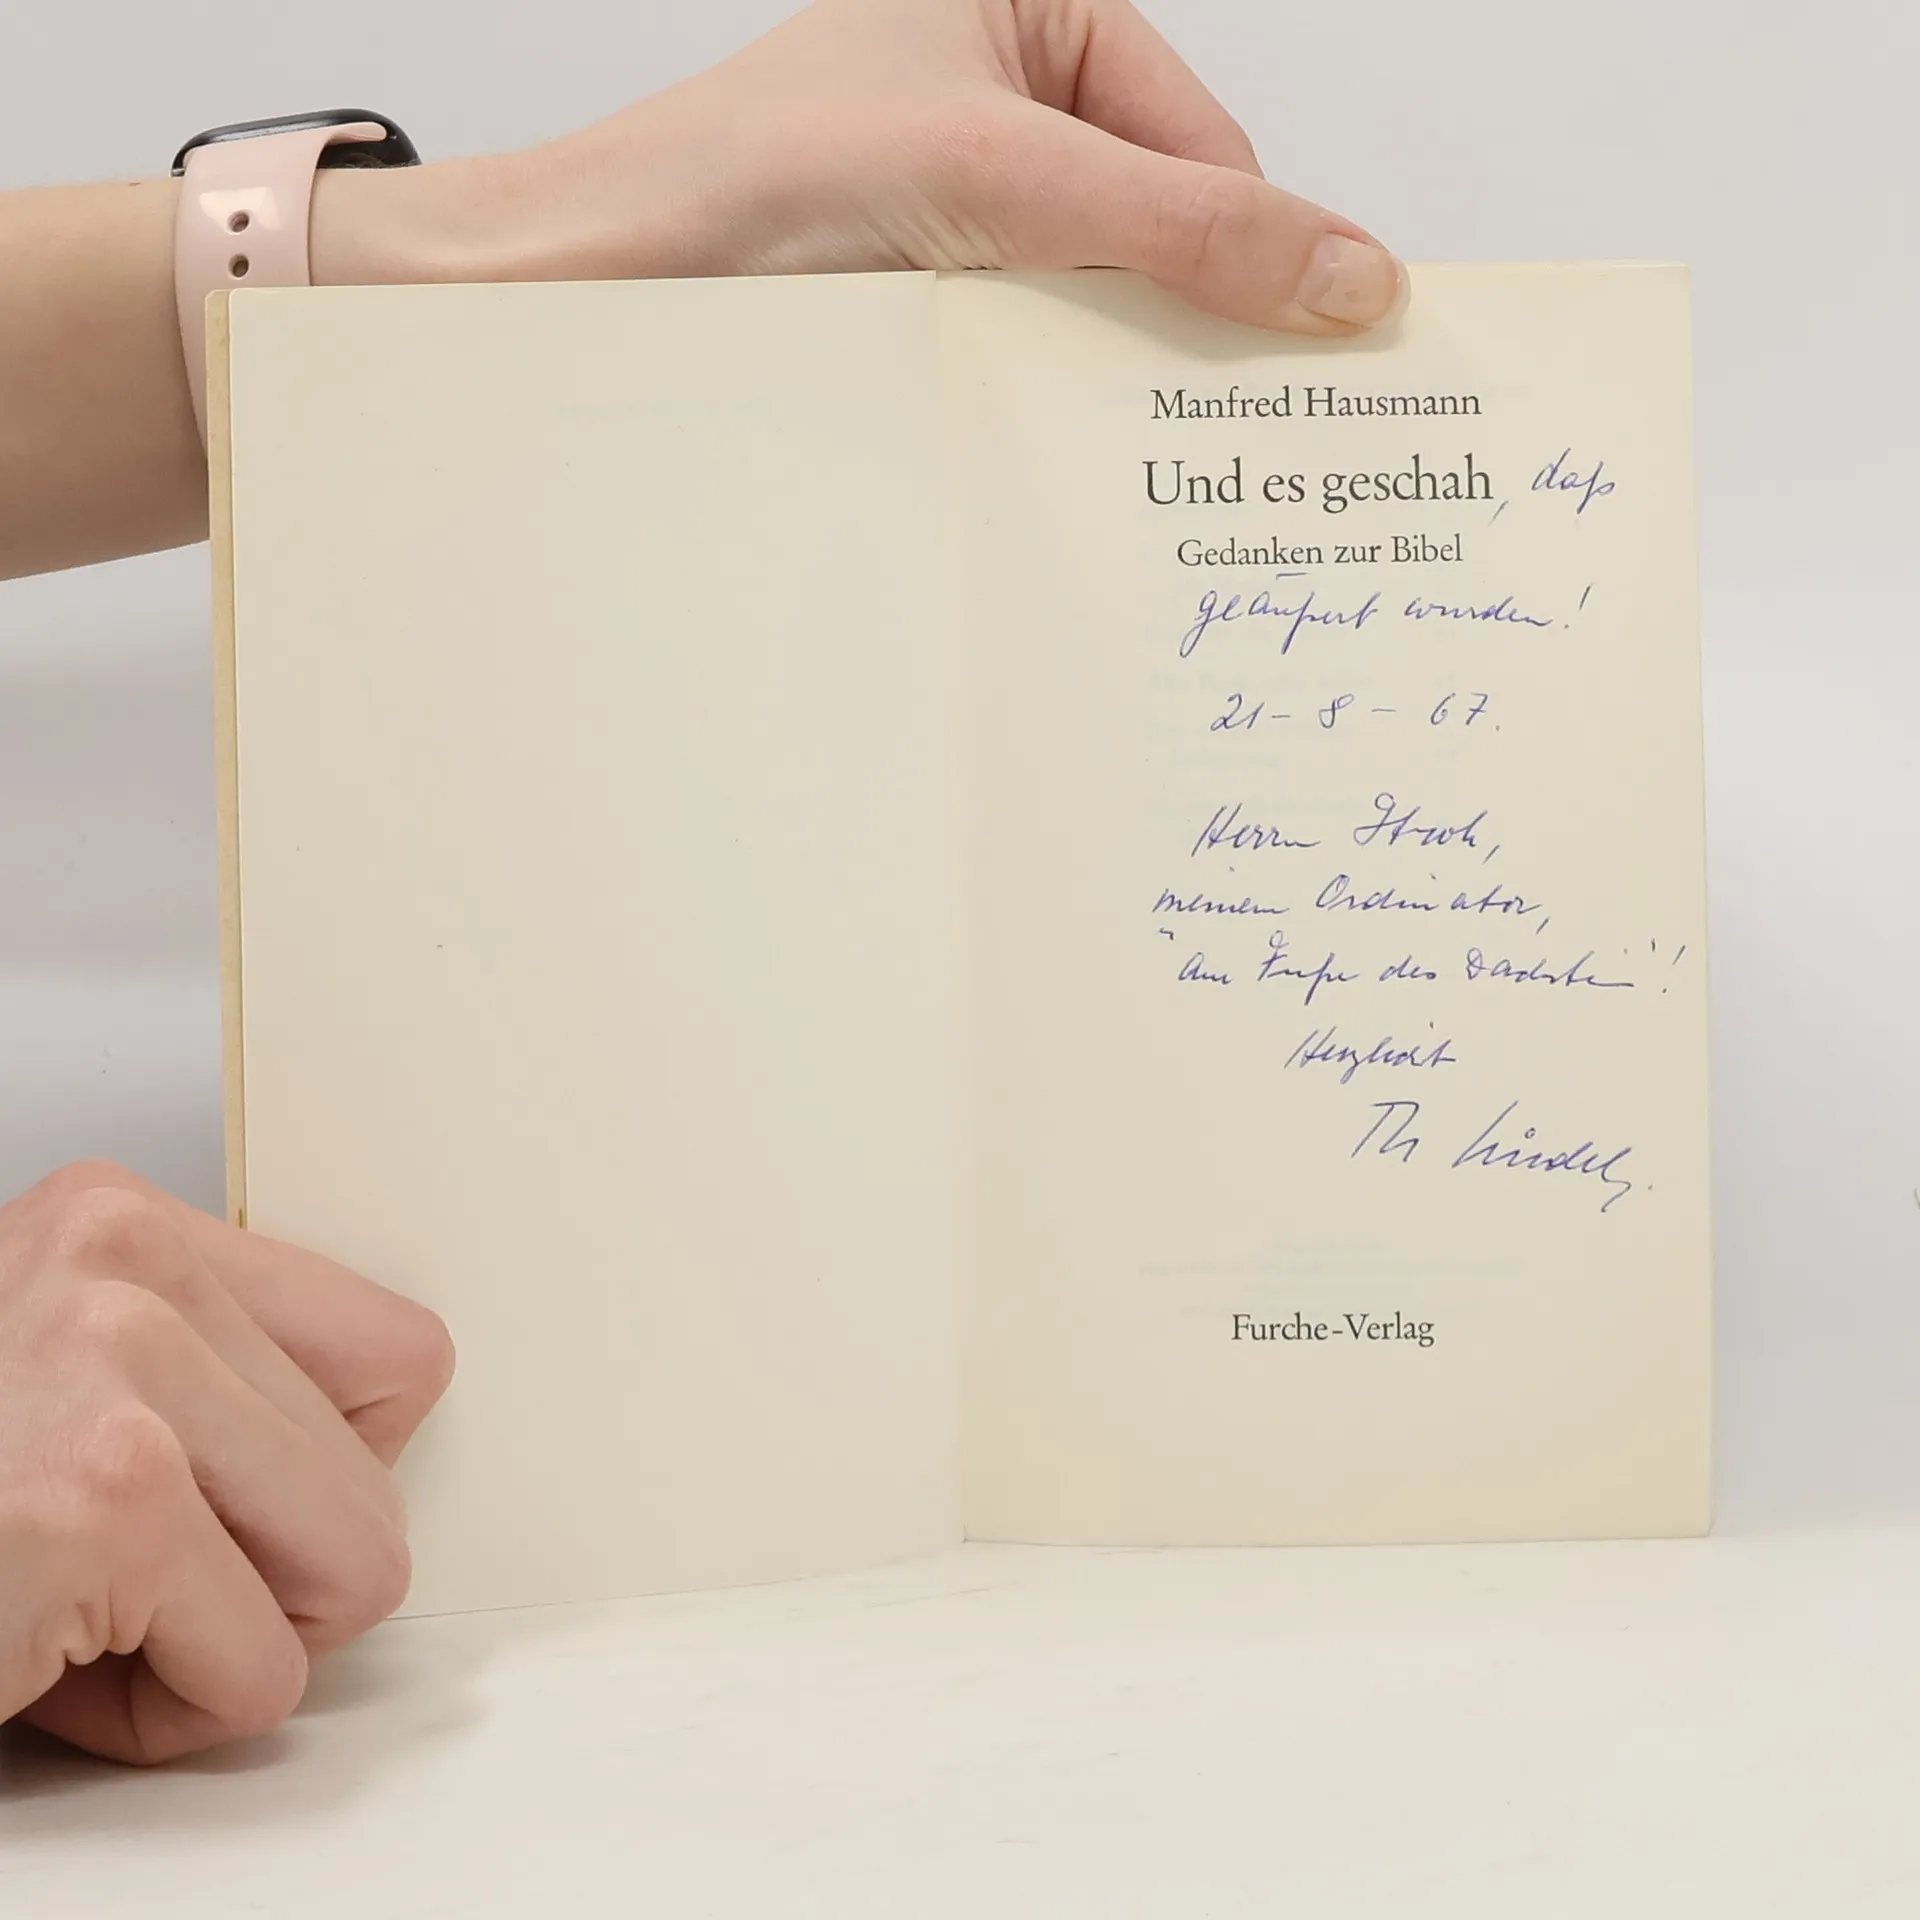 Manfred Hausmann
Und es geschah, daß
Gedanken zur Bibel
geäußert wurden!
21-8-67.
Herrn Stroh,
meinem Ordinator,
"Am Fuße des Dachstein"!
Herzlichst
Th
Furche-Verlag